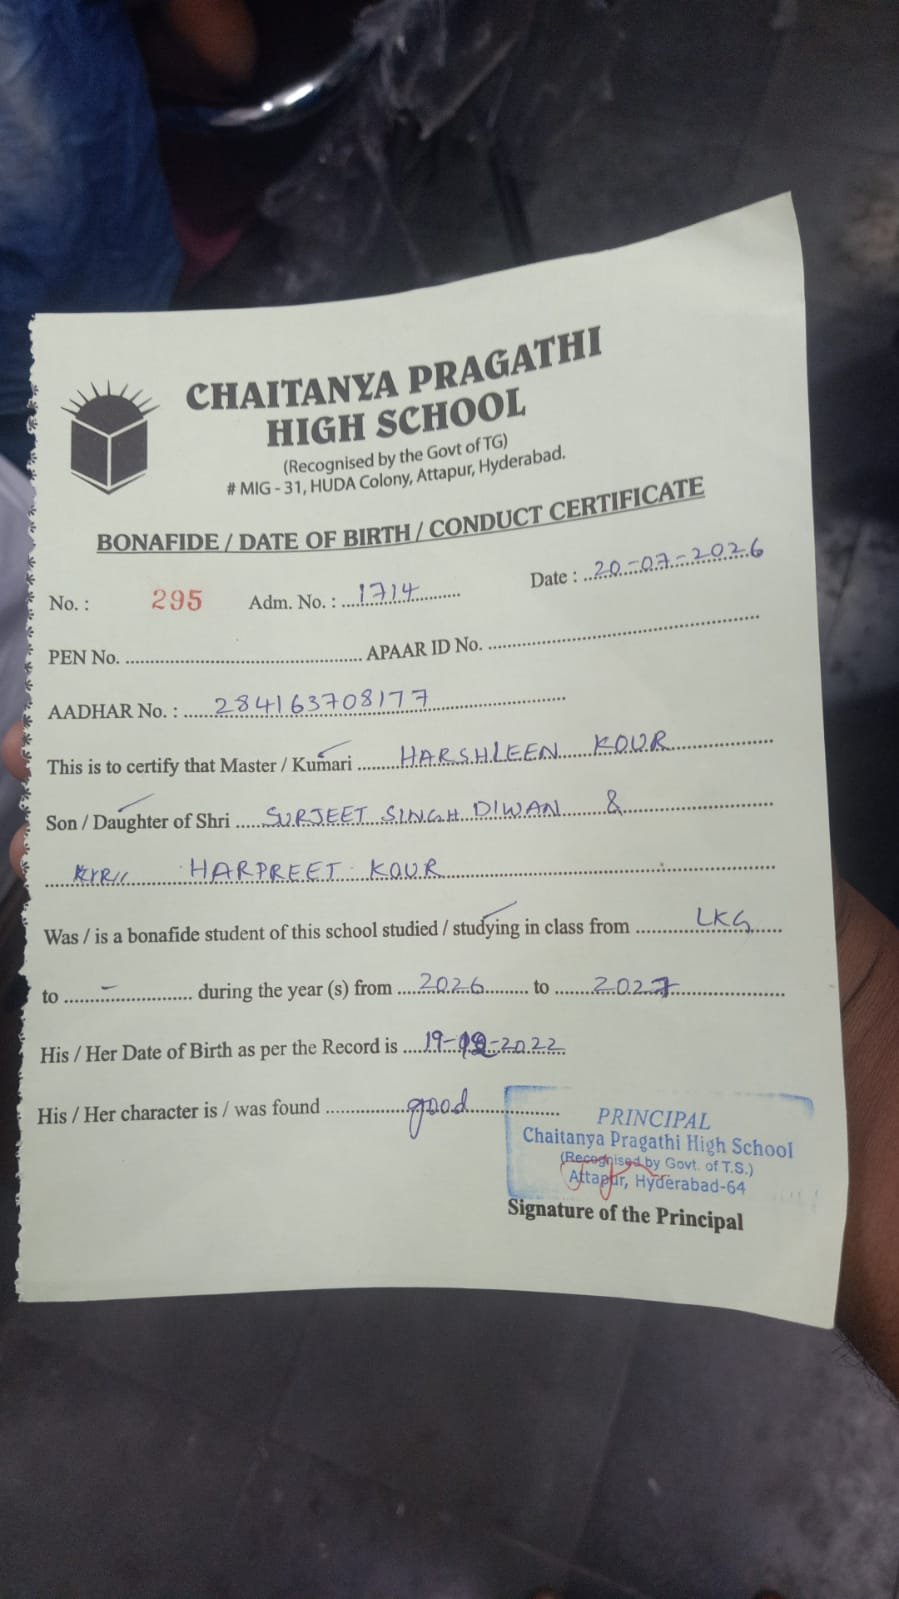 CHAITANYA PRAGATHI
HIGH SCHOOL
(Recognised by the Govt of TG)
# MIG - 31, HUDA Colony, Attapur, Hyderabad.
BONAFIDE / DATE OF BIRTH / CONDUCT CERTIFICATE
No. : 295 Adm. No. : 1714 Date : 20-07-2026
PEN No. APAAR ID No.
AADHAR No. : 284163708177
This is to certify that Master / Kumari HARSHLEEN KOUR
Son / Daughter of Shri SURJEET SINGH DIWAN &
HARPREET KOUR
Was / is a bonafide student of this school studied / studying in class from LKG
to - during the year (s) from 2026 to 2027
His / Her Date of Birth as per the Record is 19- -2022
His / Her character is / was found good
PRINCIPAL
Chaitanya Pragathi High School
(Recognised by Govt. of T.S.)
Attapur, Hyderabad-64
Signature of the Principal